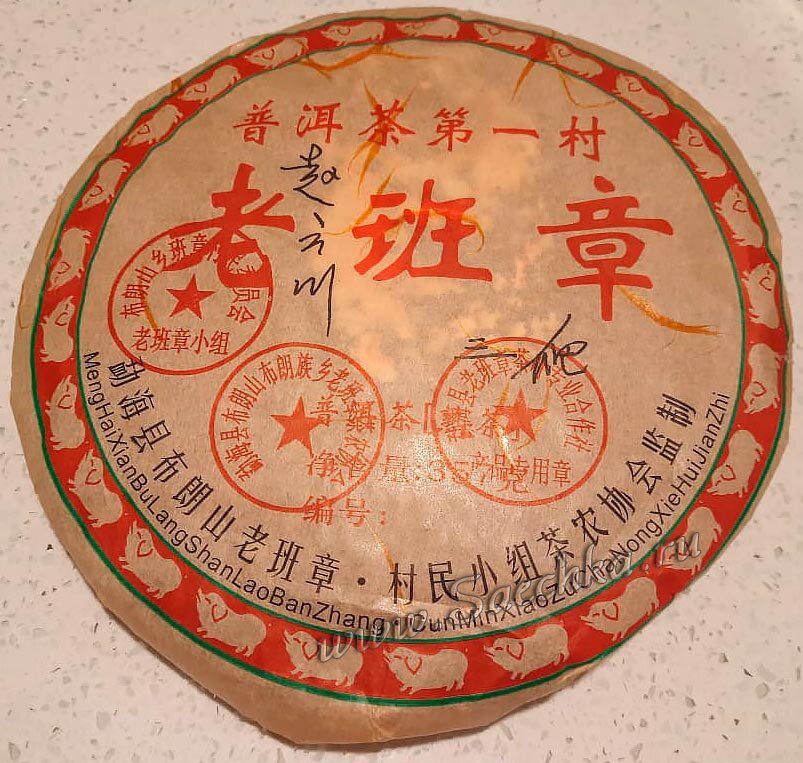 普洱茶第一村
老班章
赵云川
布朗山乡班章
老班章小组
勐海县布朗山布朗族乡老班
县老班章茶
业合作社
产品专用章
普洱茶
净含量:357克
编号:
勐海县布朗山老班章·村民小组茶农协会监制
MengHaiXianBuLangShanLaoBanZhang·CunMinXiaoZuChaNongXieHuiJianZhi
www.Saechka.ru